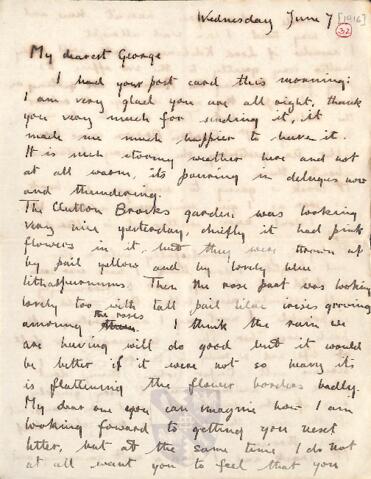 Wednesday June 7 [1916]
32
My dearest George
I had your post card this morning:
I am very glad you are all right, thank
you very much for sending it, it
made me much happier to have it.
It is such stormy weather here and not
at all warm, its pouring in deluges now
and thundering.
The Clutton Brocks garden was looking
very nice yesterday, chiefly it had pink
flowers in it, but they were thrown up
by pail yellow and by lovely blue
lithospurnums. Then the rose part was looking
lovely too with tall pail lilac irises growing
among the roses. I think the rain we
are having will do good but it would
be better if it were not so heavy its
is flattening the flower borders badly.
My dear one you can imagine how I am
looking forward to getting you next
letter, but at the same time I do not
at all want you to feel that you